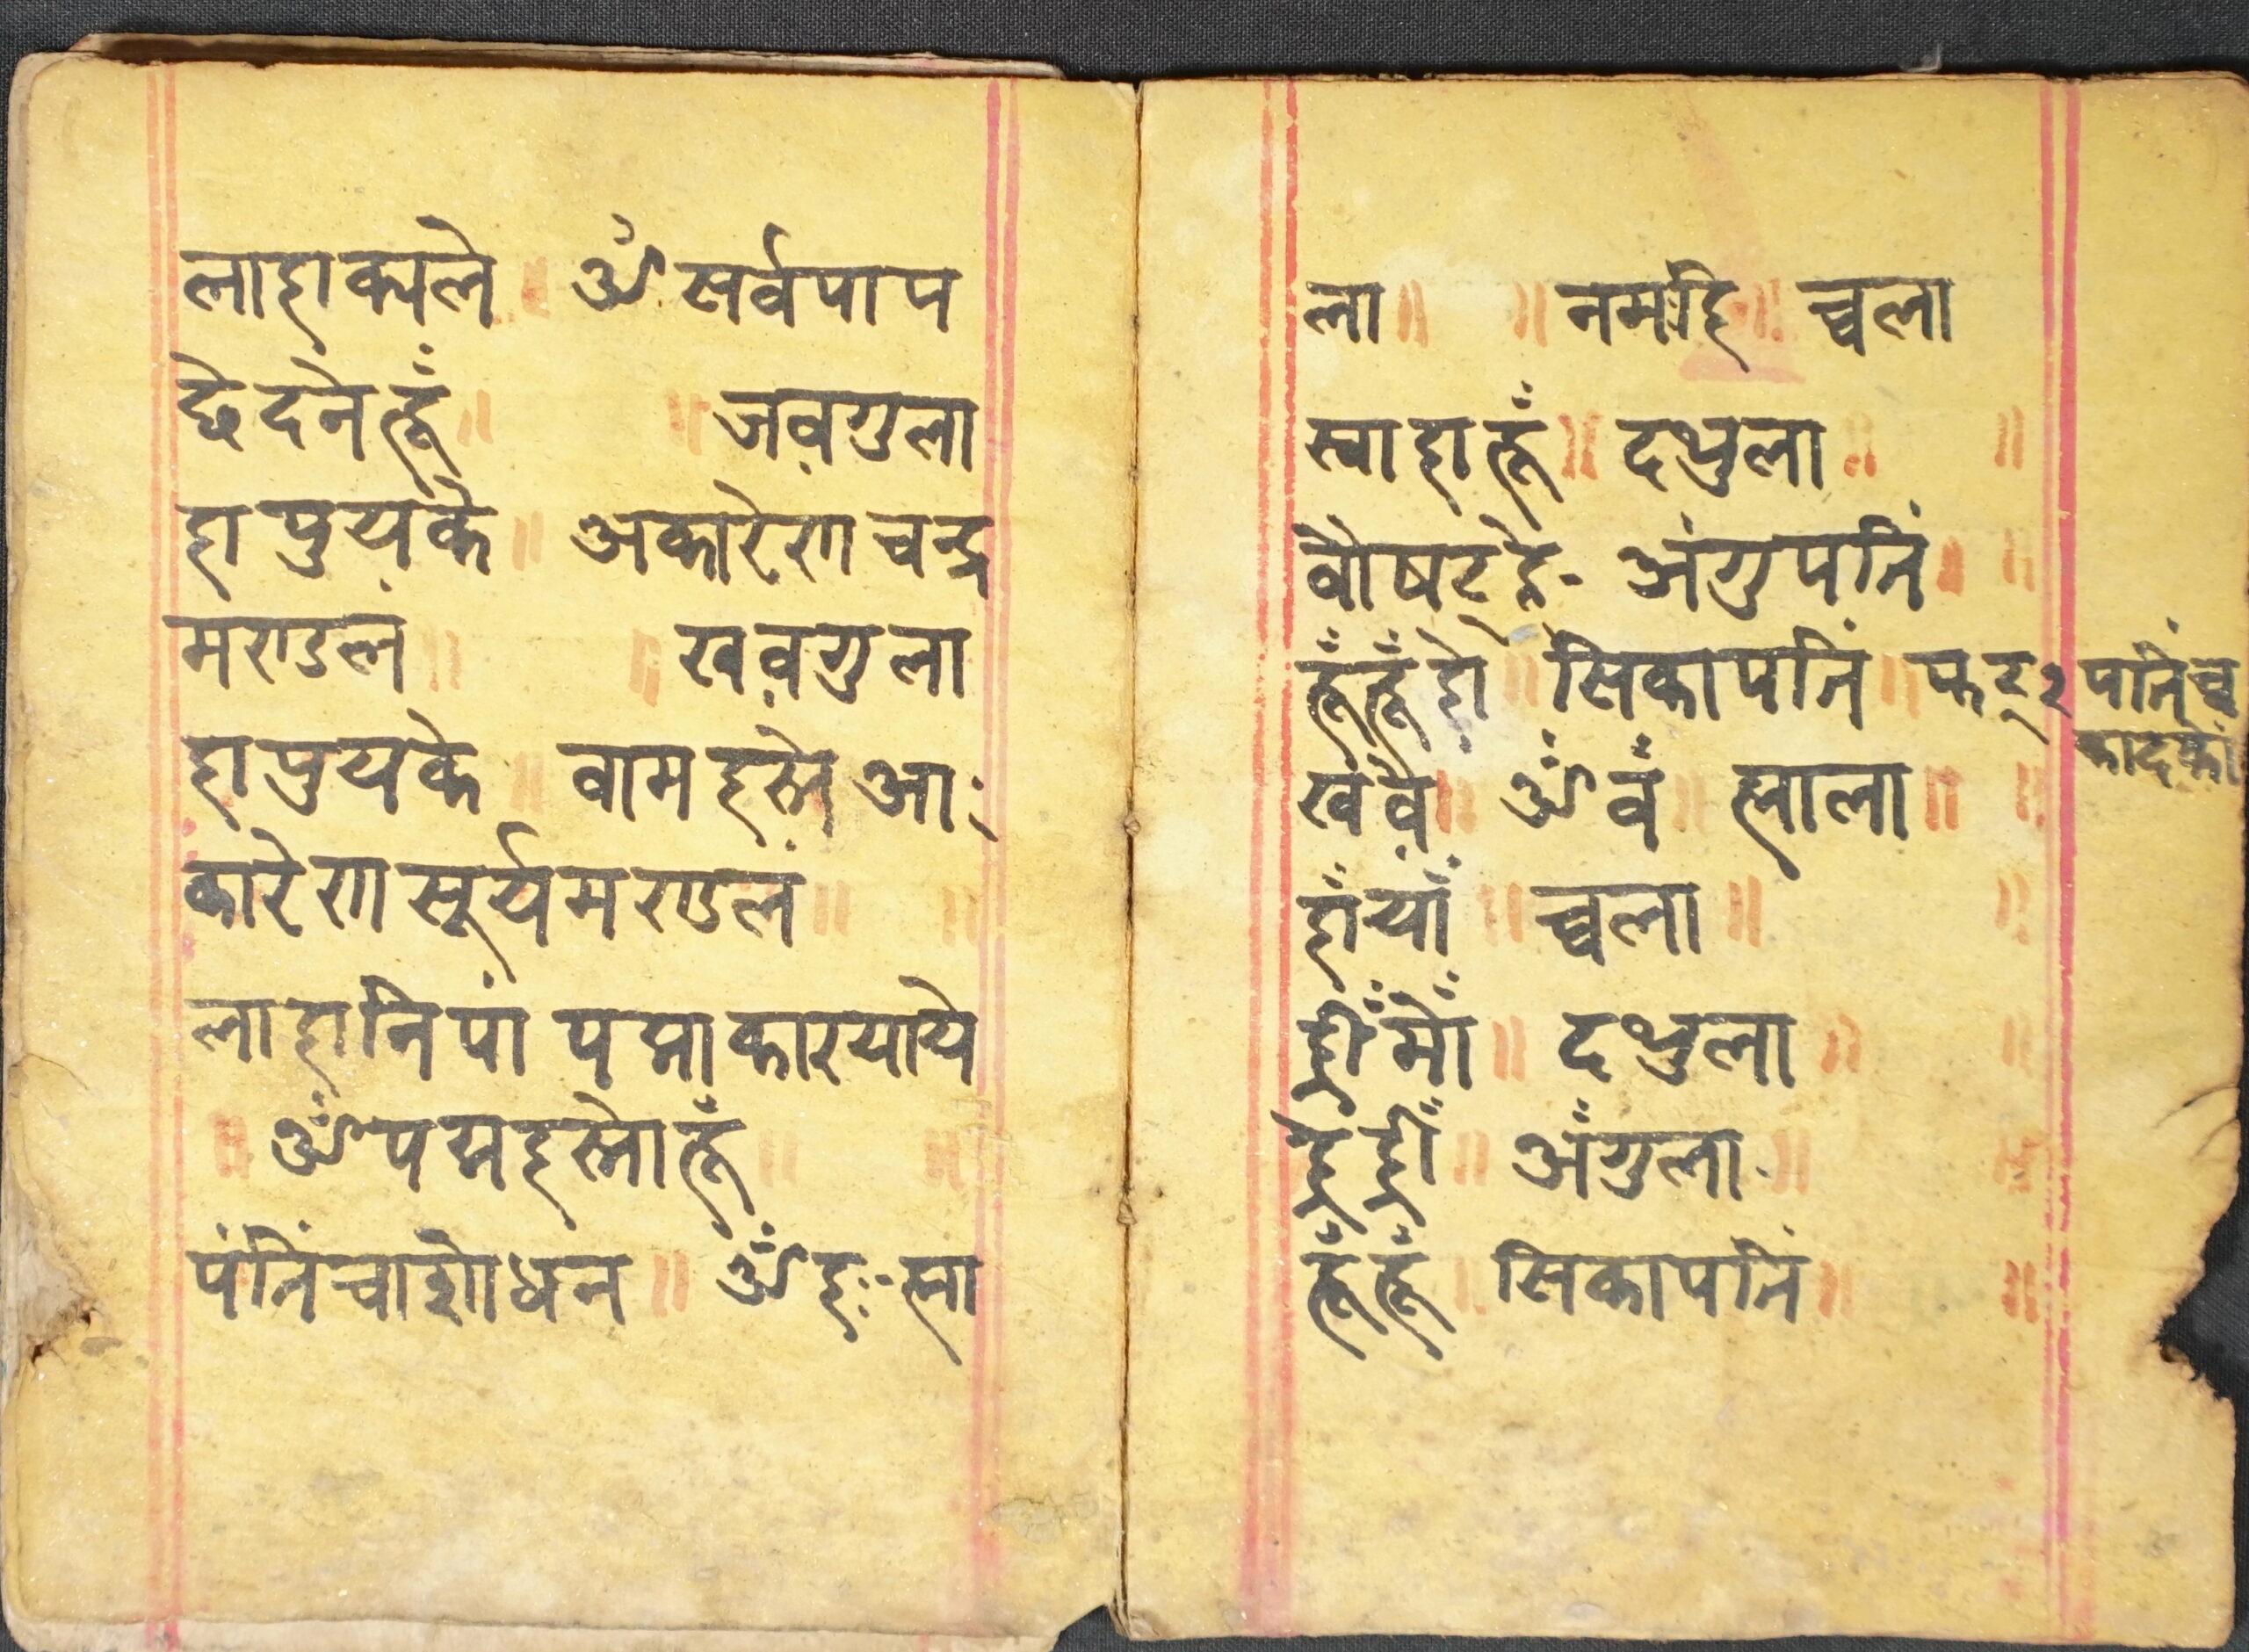 लाहाक्यले ॥ ॐ सर्वपाप
छेदने हूँ ॥ ॥ जवगुला
हा पुयके ॥ अकारेण चन्द्र
मण्डलं ॥ ॥ खवगुला
हा पुयके ॥ वामहस्ते आः
कारेण सूर्यमण्डलं ॥ ॥
लाहानिपां पद्माकारयाये
॥ ॐ पद्महस्ता हूँ ॥ ॥
पंनिंचा शोधन ॥ ॐ हः ह्ना
ला ॥ ॥ नमहि ॥ च्वला
स्वाहा हूँ ॥ दथुला ॥ ॥
वौषट् हे ॥ अंगुपनिं ॥ ॥
हूँ हूँ हो ॥ सिकापनिं ॥ फट् २ पनिंच
कादकां
खंवं ॥ ॐ वं ह्नाला ॥ ॥
हाँ याँ ॥ च्वला ॥ ॥
ह्रीँ मोँ ॥ दथुला ॥ ॥
ह्रेँ ह्रीँ ॥ अंगुला ॥ ॥
हूँ हूँ ॥ सिकापनिं ॥ ॥